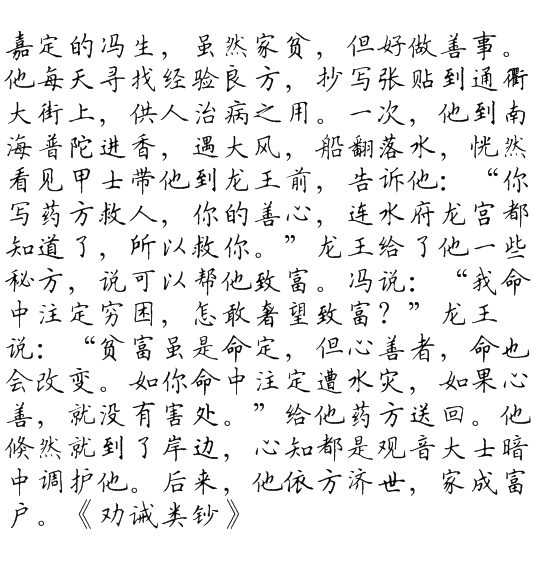 嘉定的冯生，虽然家贫，但好做善事。
他每天寻找经验良方，抄写张贴到通衢
大街上，供人治病之用。一次，他到南
海普陀进香，遇大风，船翻落水，恍然
看见甲士带他到龙王前，告诉他：“你
写药方救人，你的善心，连水府龙宫都
知道了，所以救你。”龙王给了他一些
秘方，说可以帮他致富。冯说：“我命
中注定穷困，怎敢奢望致富？”龙王
说：“贫富虽是命定，但心善者，命也
会改变。如你命中注定遭水灾，如果心
善，就没有害处。”给他药方送回。他
倏然就到了岸边，心知都是观音大士暗
中调护他。后来，他依方济世，家成富
户。《劝诫类钞》